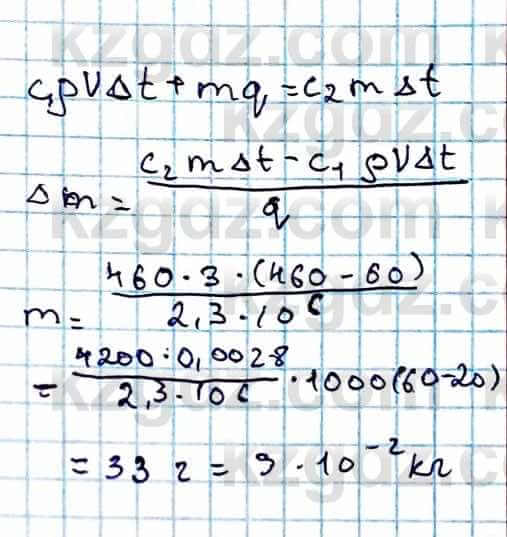 c₁ρVΔt + mq = c₂mΔt
Δm = (c₂mΔt - c₁ρVΔt) / q
m = (460·3·(460-60)) / (2,3·10⁶)
= (4200:0,0028) / (2,3·10⁶) · 1000(60-20)
= 33 г = 9·10⁻² кг